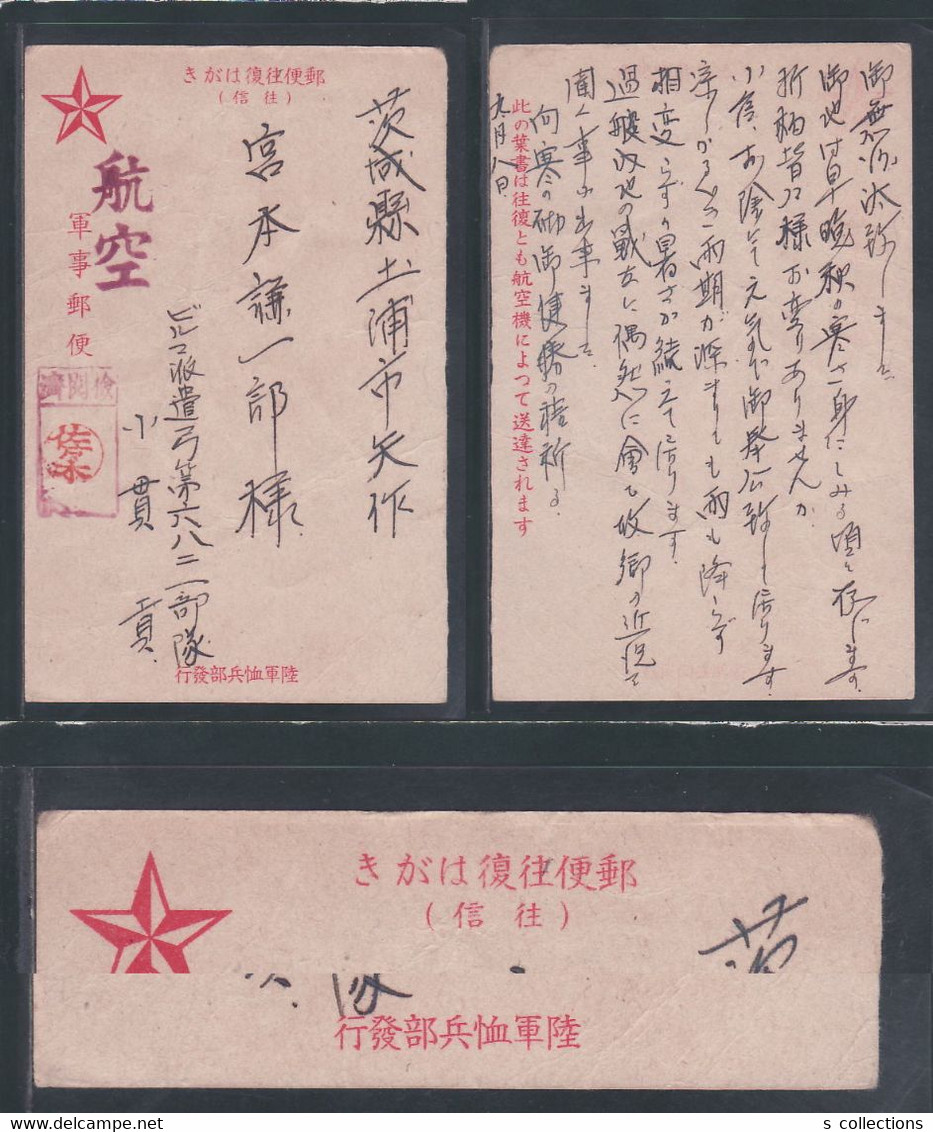 きがは復往便郵
(信往)
航空
軍事郵便
茨城縣土浦市矢作
宮本謙一郎様
ビルマ派遣弓第六八二二部隊
小貫 貢
濟閲檢
行發部兵恤軍陸
御無沙汰致しました
御地は早や晩秋の寒さ身にしみる頃と存じます
折柄皆々様お変りありませんか
小官お陰で元気で御奉公致して居ります
雨期が深まりても雨も降らず
相変らずの暑さが続いて居ります
過般内地の戦友に偶然に會ひ故郷の近況を
聞く事が出来ました
向寒の砌御健勝の程祈る
九月八日
此の葉書は往復とも航空機によつて送達されます
きがは復往便郵
(信往)
茨
行發部兵恤軍陸
s collections